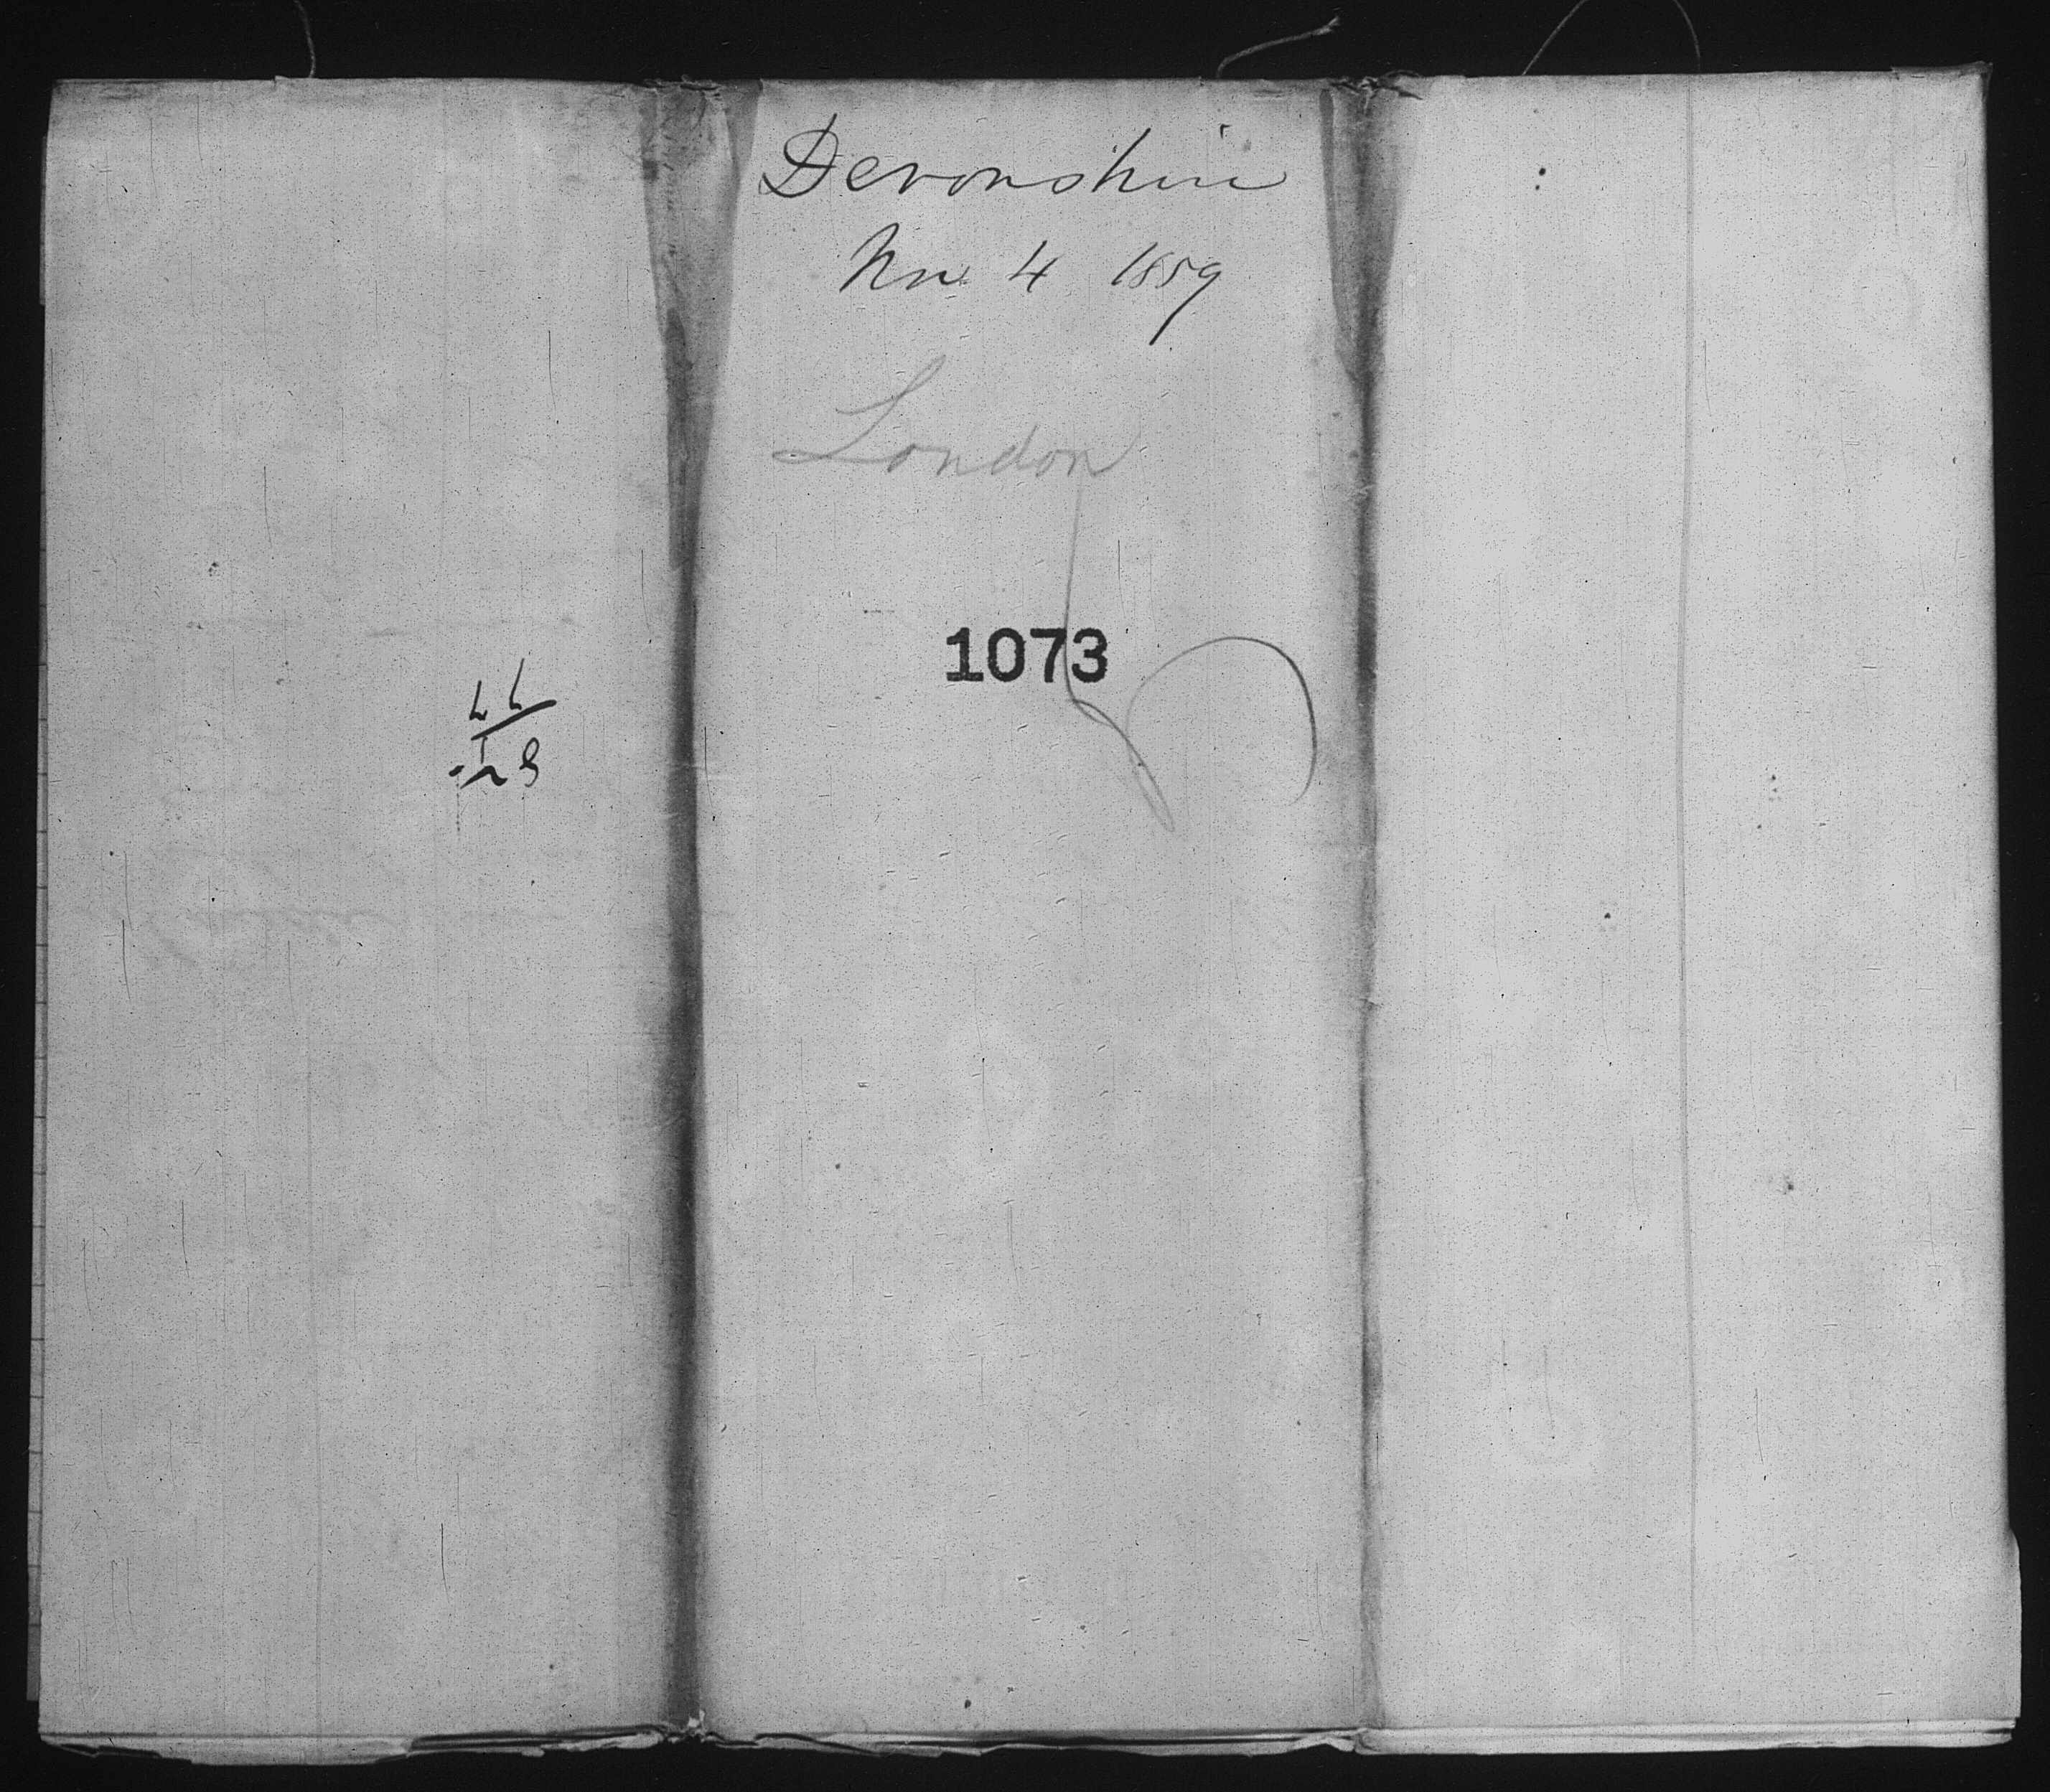 Devonshire
Nov 4 1859
London
1073